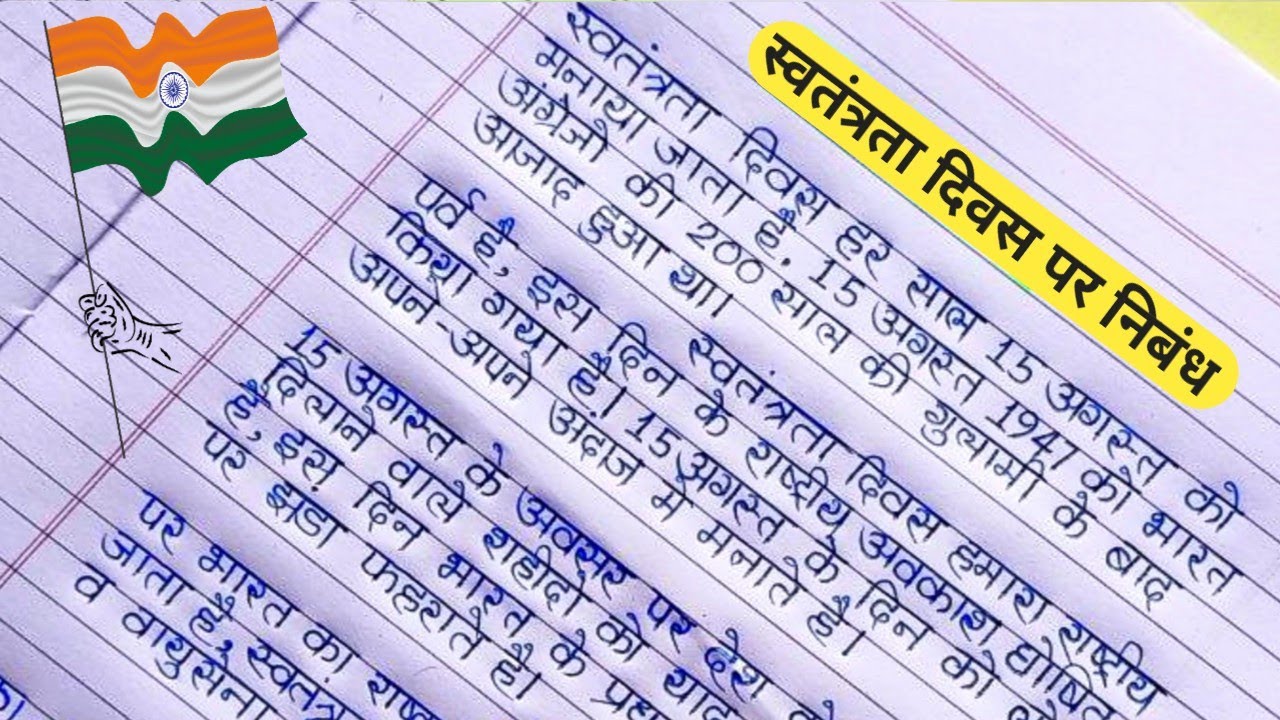 स्वतंत्रता दिवस पर निबंध
स्वतंत्रता दिवस हर साल 15 अगस्त को
मनाया जाता है. 15 अगस्त 1947 को भारत
अंग्रेजो की 200 साल की गुलामी के बाद
आजाद हुआ था।
स्वतंत्रता दिवस हमारा राष्ट्रीय
पर्व है, इस दिन के राष्ट्रीय अवकाश घोषित
किया गया है। 15 अगस्त के दिन को
अपने-अपने अंदाज मे मनाते है।
15 अगस्त के अवसर पर देश
दिलाने वाले शहीदो को याद
है, इस दिन भारत के
पर झंडा फहराते है।
पर भारत का
जाता है, स्वतंत्र
व वायुसेना